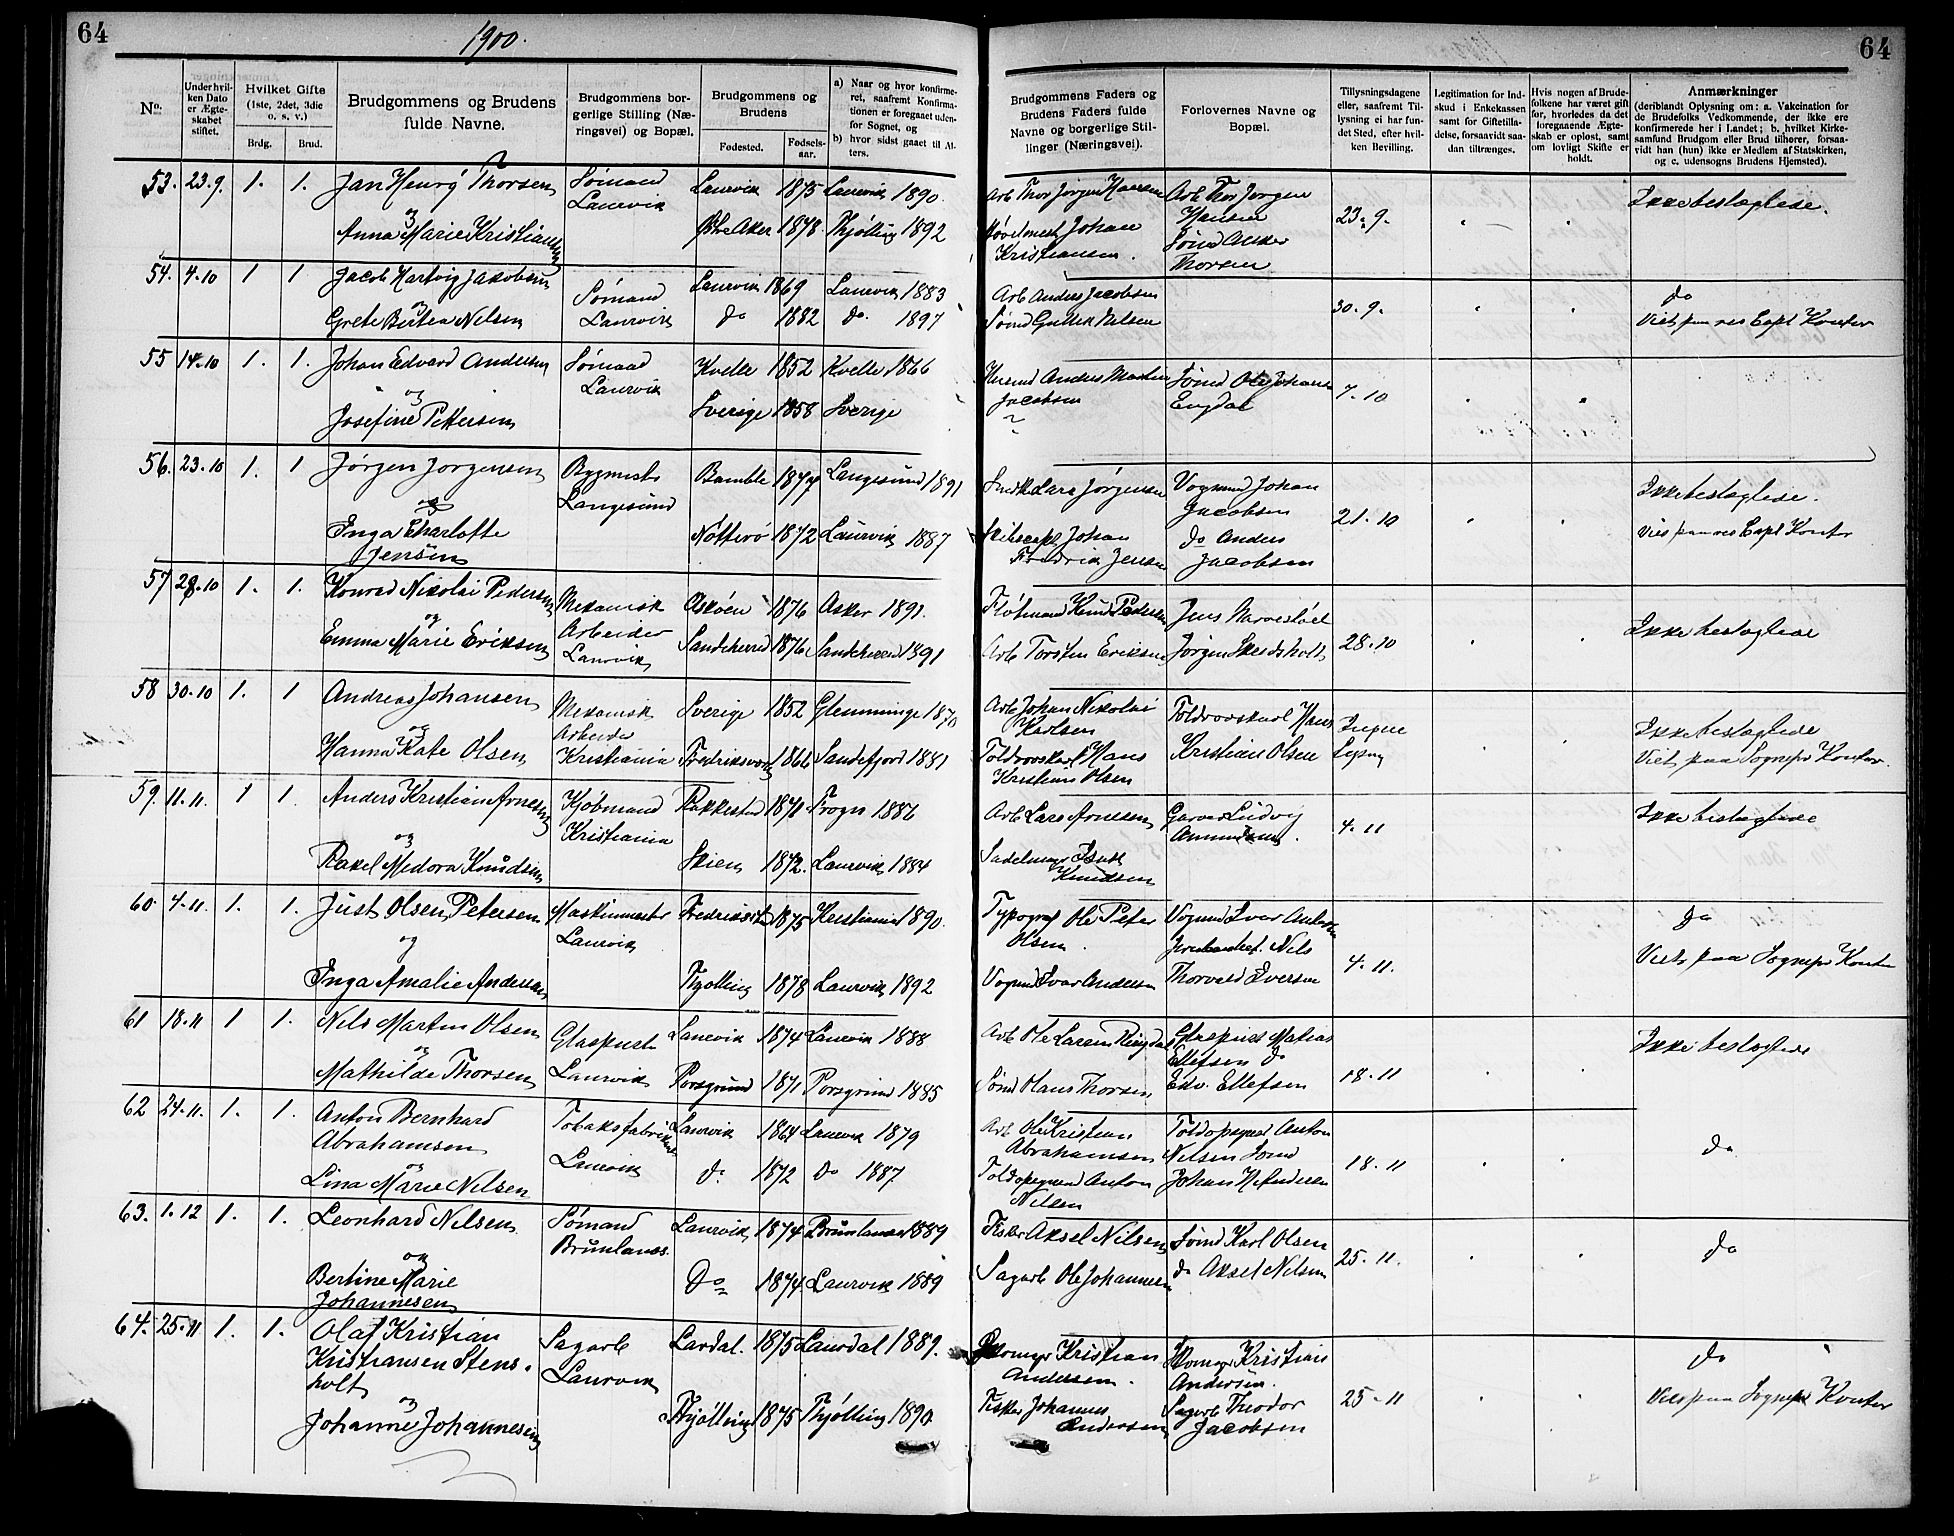 64
1900.
64
No.
Under hvil-
ken Dato
er Ægte-
skabet
stiftet.
Hvilket Gifte
(1ste, 2det, 3die
o. s. v.)
Brdg.
Brud.
Brudgommens og Brudens
fulde Navne.
Brudgommens bor-
gerlige Stilling (Næ-
ringsvei) og Bopæl.
Brudgommens og
Brudens
Fødested.
Fødsels-
aar.
a) Naar og hvor konfirme-
ret, saafremt Konfirma-
tionen er foregaaet uden-
for Sognet, og
b) hvor sidst gaaet til Al-
ters.
Brudgommens Faders og
Brudens Faders fulde
Navne og borgerlige Stil-
linger (Næringsvei).
Forlovernes Navne og
Bopæl.
Tillysningsdagene
eller, saafremt Til-
lysning ei har fun-
det Sted, efter hvil-
ken Bevilling.
Legitimation for Ind-
skud i Enkekassen
samt for Giftetilla-
delse, forsaavidt saa-
dan tiltrænges.
Hvis nogen af Brude-
folkene har været gift
før, hvorledes da det
foregaaende Ægte-
skab er opløst, samt
om lovligt Skifte er
holdt.
Anmærkninger
(deriblandt Oplysning om: a. Vakcination for
de Brudefolks Vedkommende, der ikke ere
konfirmerede her i Landet; b. hvilket Kirke-
samfund Brudgom eller Brud tilhører, forsaa-
vidt han (hun) ikke er Medlem af Statskirken,
og c. udensogns Brudens Hjemsted).
53. 23.9. 1. 1. Jan Henry Thorsen Sømand Laurvik 1875 Laurvik 1890. Arb Thor Jørgen Hansen Arb Thor Jørgen Ikke beslægtede.
og Laurvik Hansen 23.9.
Anna Marie Kristiansen Østre Aker 1878 Thjølling 1892 Johan Sømd Anker
Kristiansen. Thorsen
54. 4.10 1 1 Jacob Hartvig Jakobsen Sømand Laurvik 1869 Laurvik 1883 Arb Anders Jacobsen 30.9. do
og
Grete Nilsen Laurvik do 1882 do. 1897 Sømd Nilsen Viet paa res Capl Kontor
55 14.10 1. 1. Johan Edvard Andersen Sømand Kvelle 1852 Kvelle 1866 Husmd Anders Martin Sømd Ole Johans
og Laurvik Jacobsen Engdal 7.10
Josefine Pettersen Sverige 1858 Sverige
56. 23.10 1. 1 Jørgen Jorgensen Bygmest Bamble 1877 Langesund 1891 Snedk Lars Jørgensen Vognmd Johan Ikke beslægtede.
og Langesund Jacobsen 21.10
Inga Charlotte Nøtterø 1872 Laurvik 1887 Skibscapt Johan do Anders Vies paa res Capl Kontor
Jensen Fredrik Jensen Jacobsen
57 28.10 1. 1. Konrad Nikolai Pedersen Mekanisk 1876 Asker 1891. Fløtmand Knud Pedersen Jens
og Arbeider 28.10 Ikke beslægtede
Emma Marie Eriksen Laurvik Sandeherred 1876 Sandeherred 1891 Arb Torsten Eriksen Jørgen
58 30.10 1. 1 Andreas Johansen Mekanisk Sverige 1852 Glemminge 1870 Arb Johan Nikolai Toldrorskarl Hans Ingen
og Arbeider Karlsen Ikke beslægtede
Hanna Kate Olsen Kristiania Fredriksværn 1866 Sandefjord 1881 Toldrorskarl Hans Kristian Olsen Lysng Viet paa Sogneps Kontor.
Kristian Olsen
59. 11.11. 1 1. Anders Kristian Arnesen Kjøbmand Rakkestad 1871 Frogn 1886 Arb Lars Arnesen Garver Ludvig 4.11 Ikke beslægtede
og Kristiania Amundsen.
Rakel Medora Knudsen Skien 1872. Laurvik 1884 Sadelmager
Knudsen
60. 4.11. 1. 1. Just Olsen Petersen Maskinmester 1875 Kristiania 1890. Typograf Ole Peter Vognmd Ivar Anders do
og Laurvik Olsen. Nils 4.11.
Inga Amalie Andersen Thjølling 1878 Laurvik 1892 Vognmd Ivar Andersen Thorvald Iversen Viet paa Sogneps Kontor
61 18.11 1 1. Nils Martin Olsen Glaspust Laurvik 1874 Laurvik 1888 Arb Ole Larsen Ringdal Glaspust Matias Ikke beslægtede
og Ellefsen do
Mathilde Thorsen Laurvik Porsgrund 1871 Porsgrund 1885 Sømd Hans Thorsen Edv. Ellefsen 18.11
62 24.11. 1. 1. Anton Bernhard Tobaksfabrik Laurvik 1864 Laurvik 1879 Arb Ole Kristian Toldopsynsmd Anton
Abrahamsen Laurvik Abrahamsen Nilsen Sømd 18.11 do
og do. 1872 Do 1887 Toldopsynsmd Anton Johan H Andersen
Lina Marie Nilsen Nilsen
63. 1.12 1. 1. Leonhard Nilsen Sømand Laurvik 1874 Brunlanæs 1889 Fisker Aksel Nilsen Sømd Karl Olsen
og Brunlanæs. 25.11. do
Bertine Marie Do 1874 Laurvik 1889 Sagarb Ole Johannesen do Aksel Nilsen
Johannesen
64. 25.11 1. 1. Olaf Kristian Sagarb Lardal. 1875 Laurdal 1889. Skomager Kristian Skomager Kristian do
Kristiansen Stens- Laurvik Andersen. Andersen.
holt 25.11 Vies paa Sogneps Kontor
og Thjølling 1875 Thjølling 1890 Fisker Johannes Sagarb Theodor
Johanne Johannesen Andersen Jacobsen